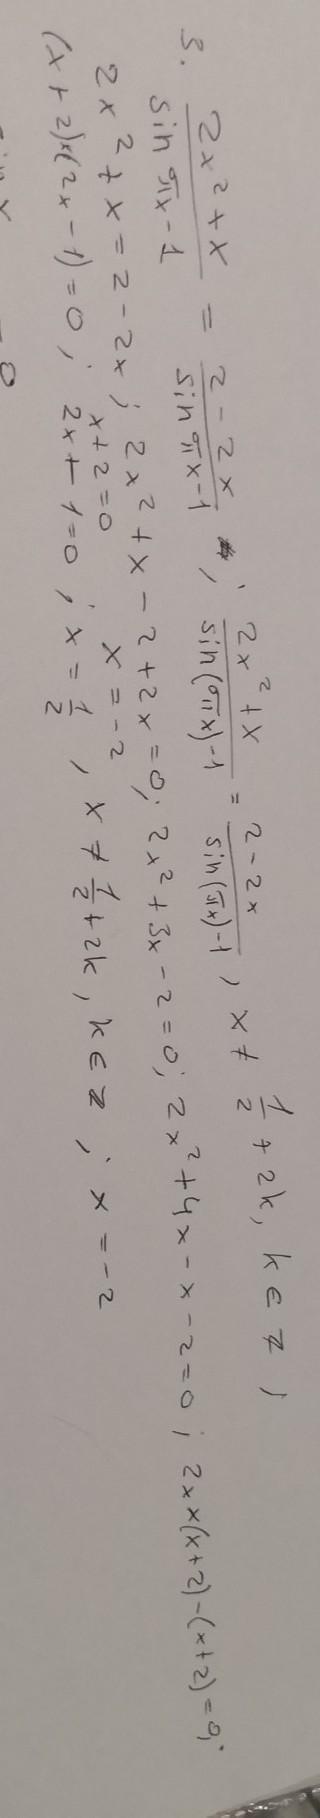 3. \frac{2x^2+x}{\sin \pi x-1} = \frac{2-2x}{\sin \pi x-1}; \frac{2x^2+x}{\sin(\pi x)-1} = \frac{2-2x}{\sin(\pi x)-1}, x ≠ \frac{1}{2}+2k, k ∈ Z,
2x^2+x=2-2x; 2x^2+x-2+2x=0; 2x^2+3x-2=0; 2x^2+4x-x-2=0; 2x×(x+2)-(x+2)=0;
x+2=0 x=-2
(x+2)×(2x-1)=0; 2x-1=0; x=\frac{1}{2}, x ≠ \frac{1}{2}+2k, k ∈ Z; x=-2